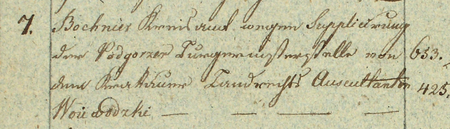 7. Bochnier Kreisamt wegen Supplirung
der Podgorzer Burgermeisterstelle von 653.
dem Krakauer Landrechts Auscultanten 425.
Woiwodzki — — — —